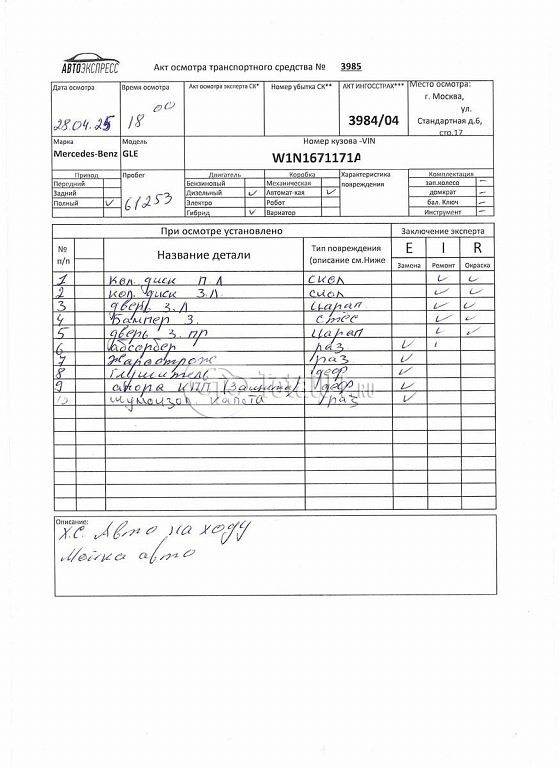 АВТОЭКСПРЕСС
Акт осмотра транспортного средства № 3985
Дата осмотра Время осмотра Акт осмотра эксперта СК* Номер убытка СК** АКТ ИНГОССТРАХ*** Место осмотра:
28.04.25 18 00 3984/04 г. Москва,
ул.
Стандартная д.6,
стр.17
Марка Модель Номер кузова -VIN
Mercedes-Benz GLE W1N1671171A
Привод Пробег Двигатель Коробка Характеристика повреждения Комплектация
Передний Бензиновый Механическая зап.колесо –
Задний Дизельный ✓ Автомат-кая ✓ домкрат –
Полный ✓ 61253 Электро Робот бал. Ключ –
Гибрид ✓ Вариатор Инструмент –
При осмотре установлено Заключение эксперта
№ п/п Название детали Тип повреждения (описание см.Ниже E I R
Замена Ремонт Окраска
1 Кол. диск П Л скол ✓ ✓
2 кол. диск З.Л. скол ✓ ✓
3 дверь З.Л царап ✓ ✓
4 Бампер З. стес ✓ ✓
5 дверь З. пр царап ✓ ✓
6 абсорбер раз ✓
7 раз ✓
8 Глушитель деф ✓
9 опора КПП (Защита) деф ✓
10 шумоизол. капота раз ✓
Описание:
Х.С. Авто на ходу
Мойка авто